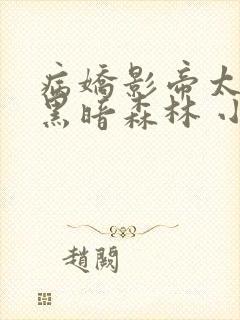 病嬌影帝太
黑暗森林 小
趙闕